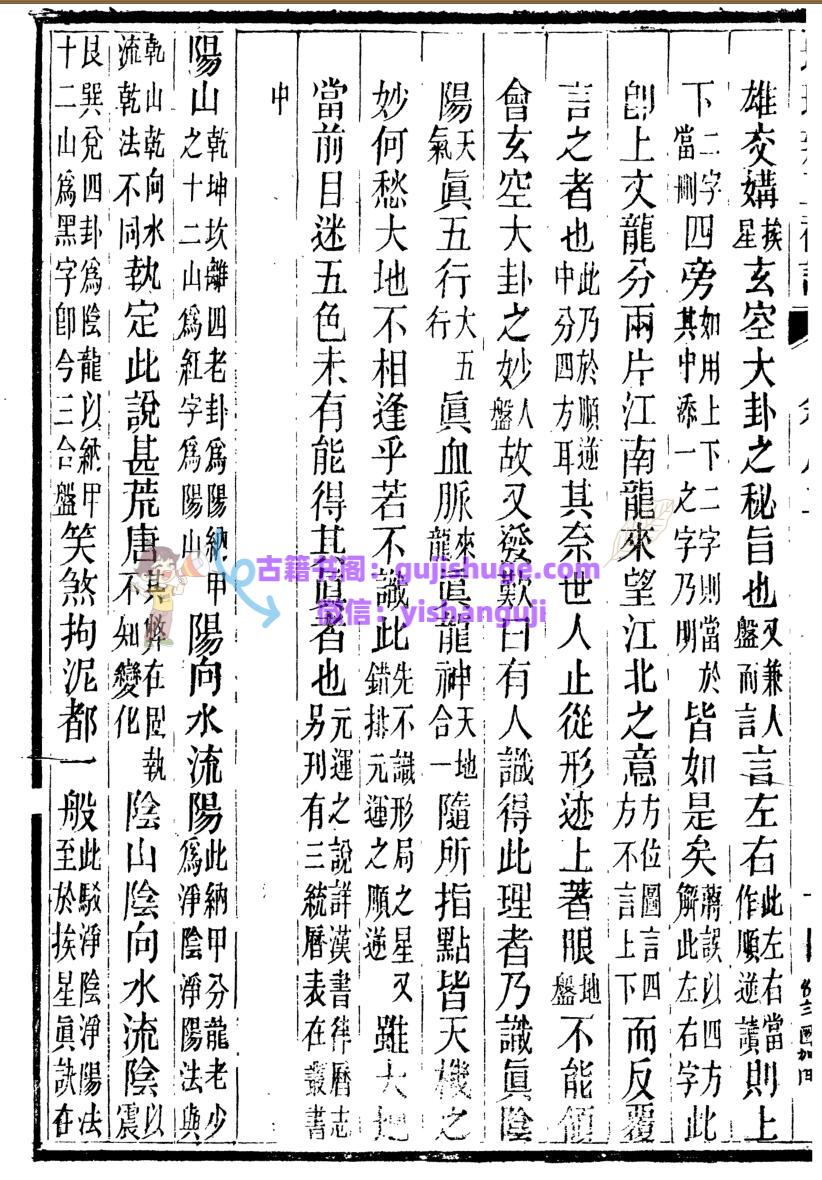 雄交媾挨星玄空大卦之秘旨也又兼人盤而言言左右此左右當作順逆讀則上
下二字當刪四旁如用上下二字則當於其中添一之字乃明皆如是矣蔣誤以四方解此左右字此
卽上文龍分兩片江南龍來望江北之意方位圖言四方不言上下而反覆
言之者也此乃於順逆中分四方耳其奈世人止從形迹上著眼地盤不能領
會玄空大卦之妙人盤故又發歎曰有人識得此理者乃識眞陰
陽天氣眞五行大五行眞血脈來龍眞龍神天地合一隨所指點皆天機之
妙何愁大地不相逢乎若不識此先不識形局之星又錯排元運之順逆雖大地
當前目迷五色未有能得其眞者也元運之說詳漢書律曆志另刊有三統曆表在叢書
中
陽山乾坤坎離四老卦爲陽納甲之十二山爲紅字爲陽山陽向水流陽此納甲分龍老少爲淨陰淨陽法與
乾山乾向水流乾法不同執定此說甚荒唐其弊在固執不知變化陰山陰向水流陰以震
艮巽兌四卦爲陰龍以納甲十二山爲黑字卽今三合盤笑煞拘泥都一般此駁淨陰淨陽法至於挨星眞訣在
古籍书阁：gujishuge.com
微信：yishanguji